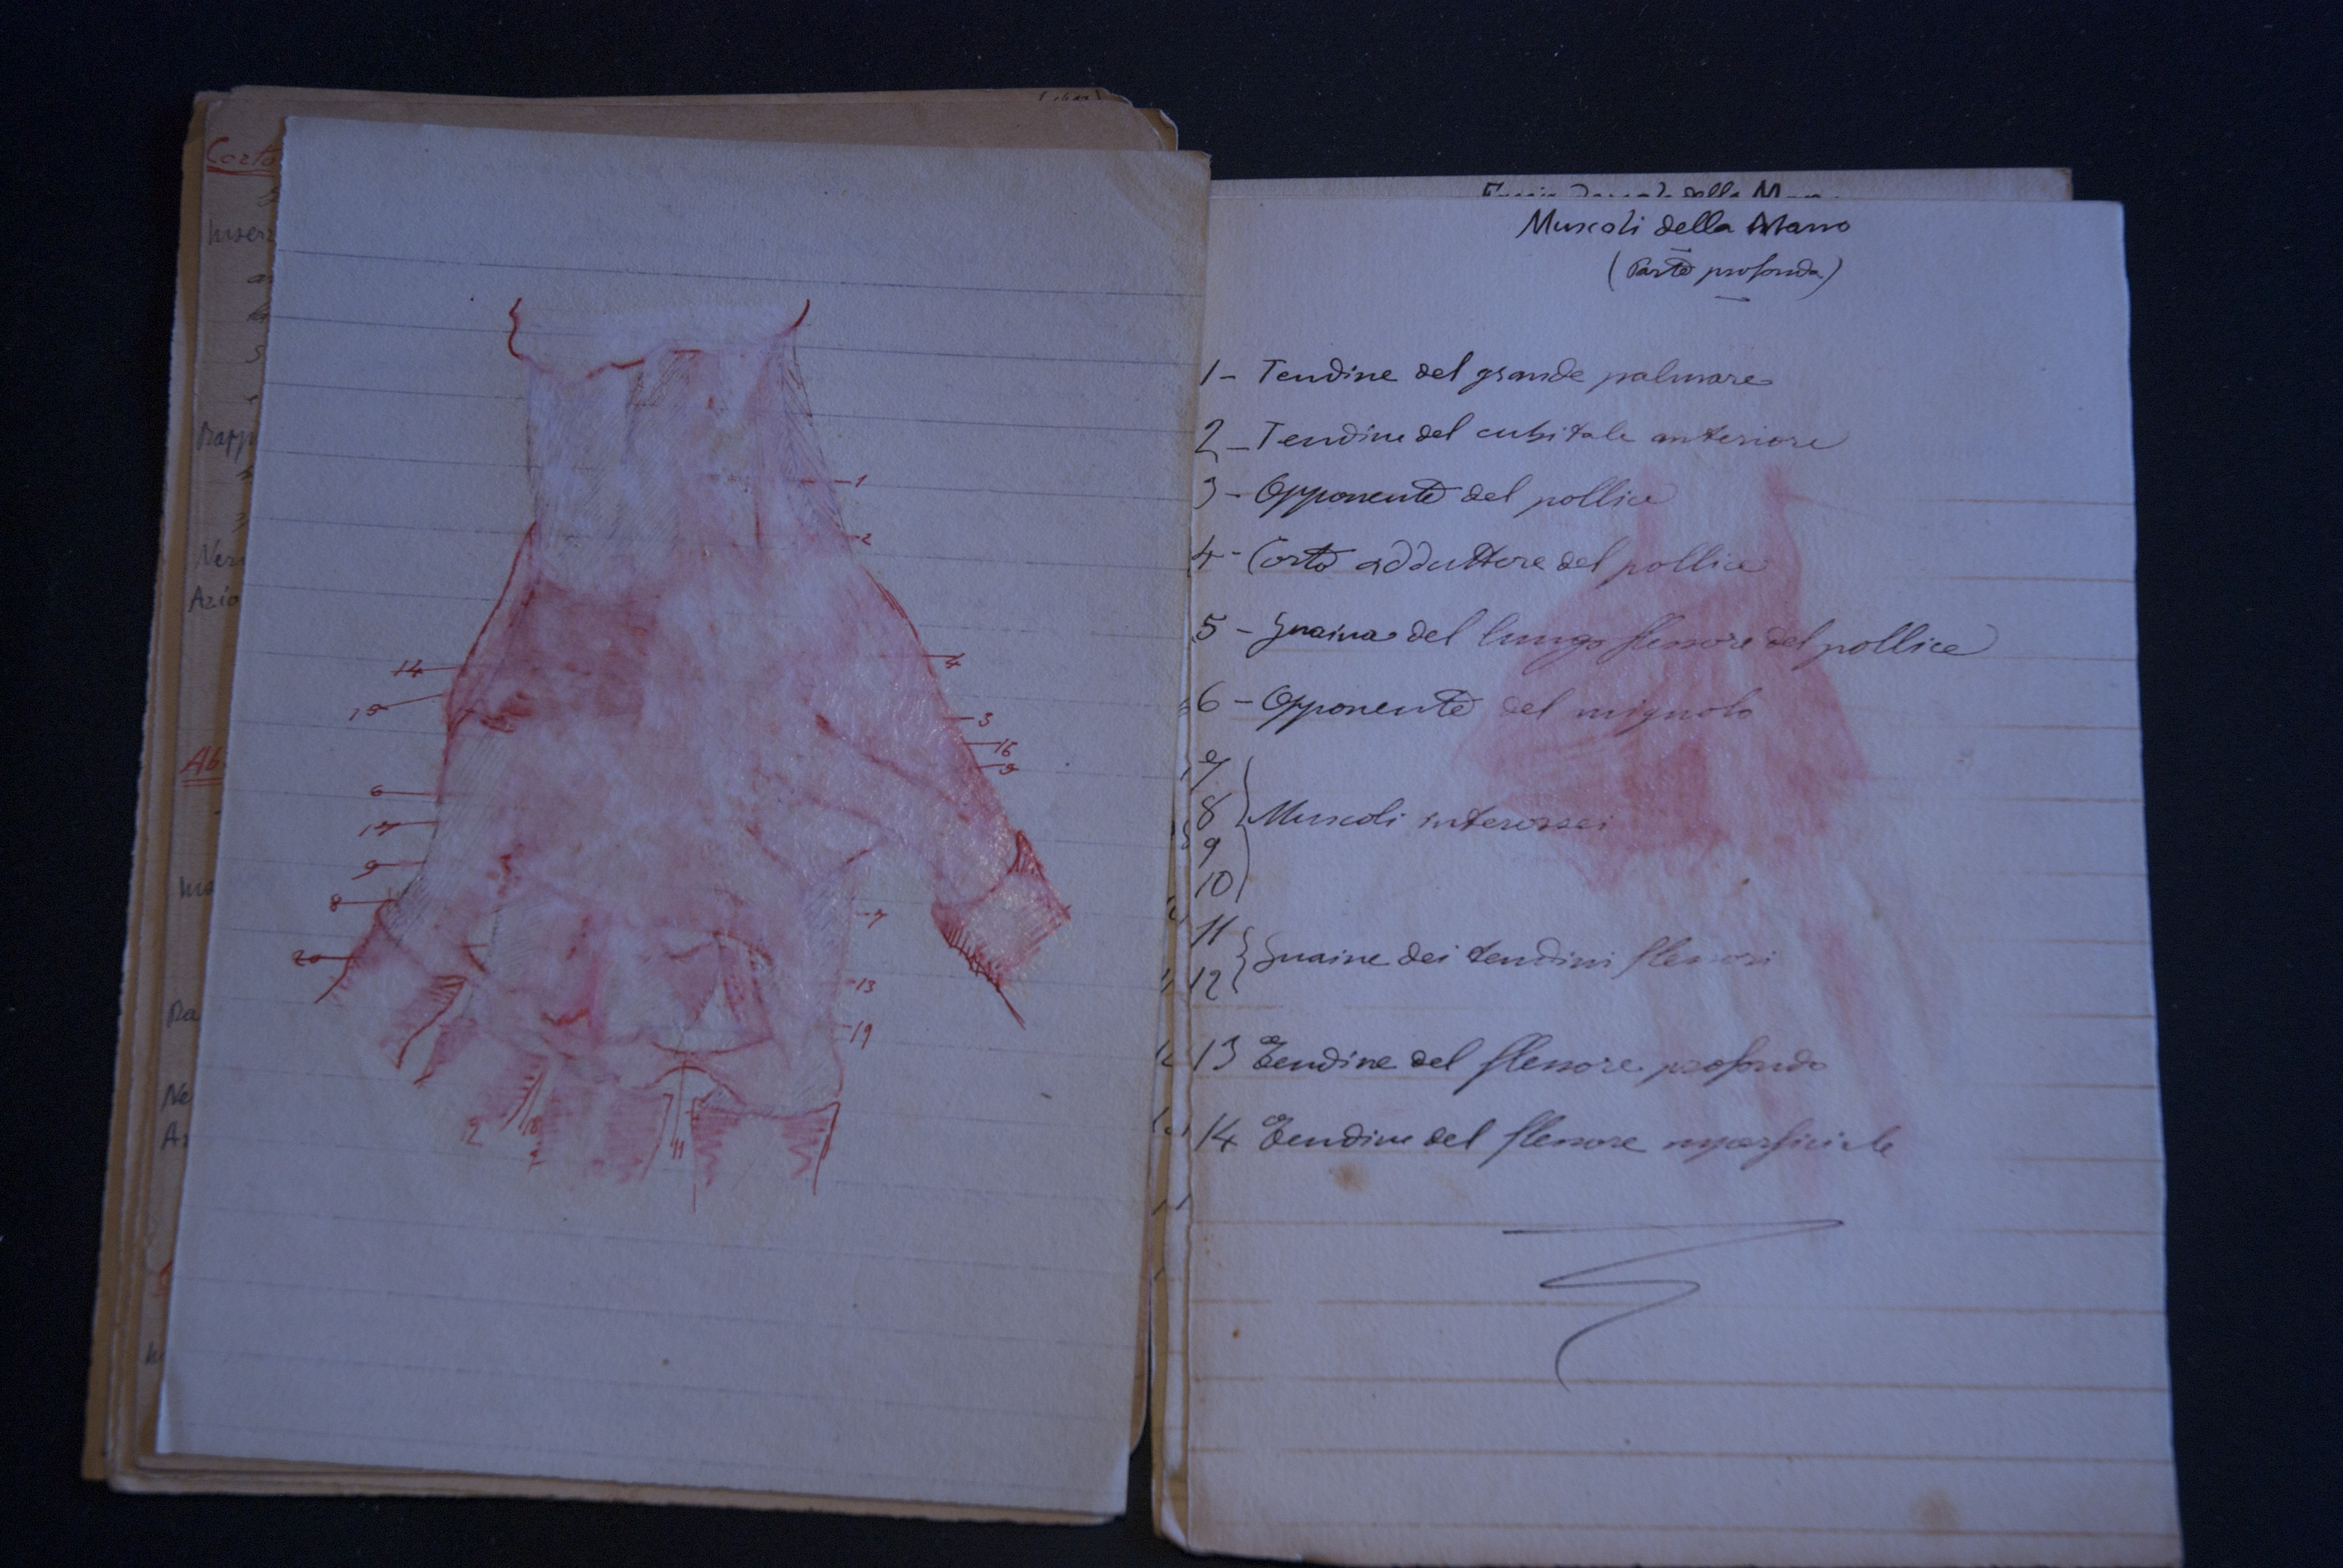 Corto
Inser
Rapp
Ner
Azio
Ab
Ins
Ra
Ne
Az
1
2
14
4
15
3
16
5
6
17
9
8
7
20
13
19
12
18
11
della Mano
Muscoli della Mano
(Parte profonda)
1 - Tendine del grande palmare
2 - Tendine del cubitale anteriore
3 - Opponente del pollice
4 - Corto adduttore del pollice
5 - Guaina del lungo flessore del pollice
6 - Opponente del mignolo
7
8 Muscoli interossei
9
10
11
12 Guaine dei tendini flessori
13 Tendine del flessore profondo
14 Tendine del flessore superficiale